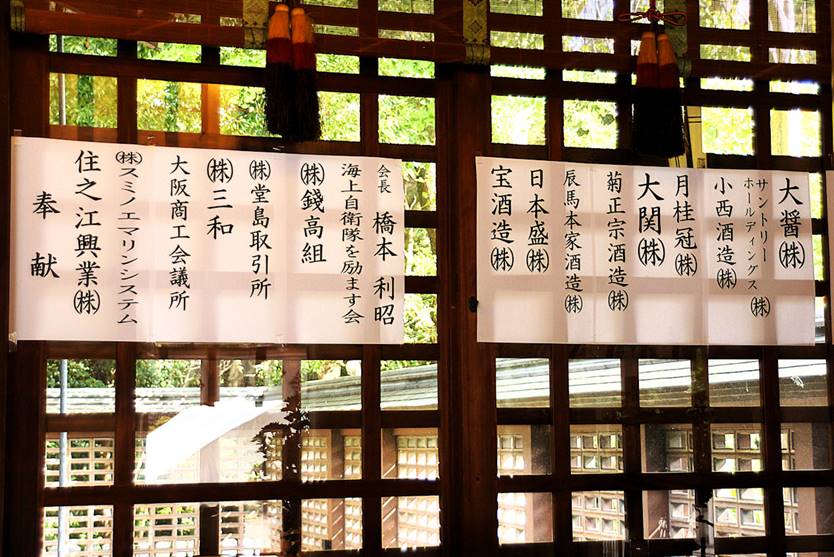 大醤㈱
サントリーホールディングス㈱
小西酒造㈱
月桂冠㈱
大関㈱
菊正宗酒造㈱
辰馬本家酒造㈱
日本盛㈱
宝酒造㈱
会長 橋本 利昭
海上自衛隊を励ます会
㈱錢高組
㈱堂島取引所
㈱三和
大阪商工会議所
㈱スミノエマリンシステム
住之江興業㈱
奉献